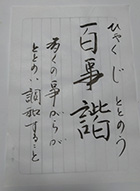 ひゃく じ ととのう
百事諧
多くの事がらが
ととのい調和すること